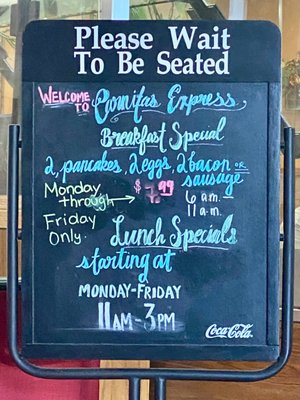 Please Wait
To Be Seated
WELCOME TO Comitas Express
Breakfast Special
2 pancakes, 2 eggs, 2 bacon OR sausage
Monday through Friday Only.
$7.99
6 am - 11 am.
Lunch Specials
starting at
MONDAY-FRIDAY
11AM-3PM
Coca-Cola